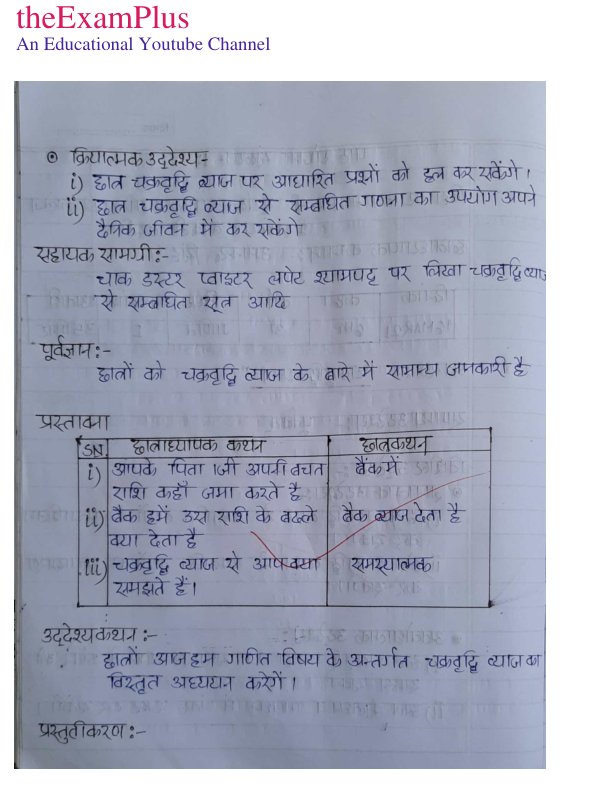 theExamPlus
An Educational Youtube Channel
क्रियात्मक उद्देश्य-
i) छात्र चक्रवृद्धि ब्याज पर आधारित प्रश्नों को हल कर सकेंगे।
ii) छात्र चक्रवृद्धि ब्याज से सम्बधित गणना का उपयोग अपने
दैनिक जीवन में कर सकेंगे
सहायक सामग्री:-
चाक डस्टर प्वाइटर लपेट श्यामपट्ट पर लिखा चक्रवृद्धि ब्याज
से सम्बधित सूत्र आदि
पूर्वज्ञान:-
छात्रों को चक्रवृद्धि ब्याज के बारे में सामान्य जानकारी है
प्रस्तावना
SN छात्राध्यापक कथन छात्रकथन
i) आपके पिता जी अपनी बचत बैंक में
राशि कहाँ जमा करते है
ii) बैंक हमें उस राशि के बदले बैंक ब्याज देता है
क्या देता है
iii) चक्रवृद्धि ब्याज से आप क्या समस्यात्मक
समझते हैं।
उद्देश्यकथन:-
छात्रों आज हम गणित विषय के अन्तर्गत चक्रवृद्धि ब्याज का
विस्तृत अध्ययन करेगें।
प्रस्तुतीकरण:-